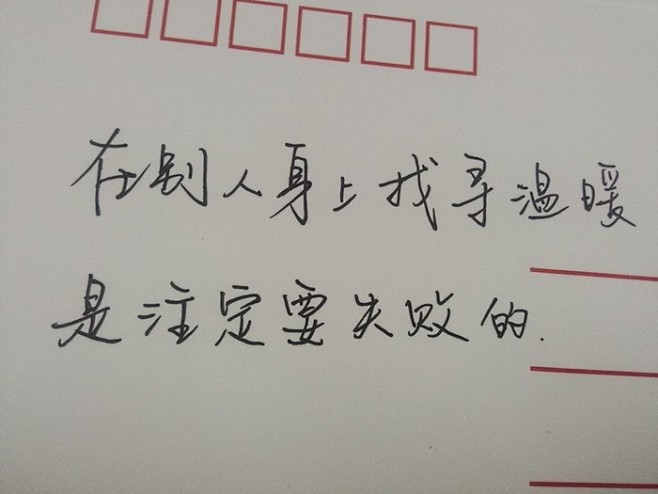 在别人身上找寻温暖
是注定要失败的.